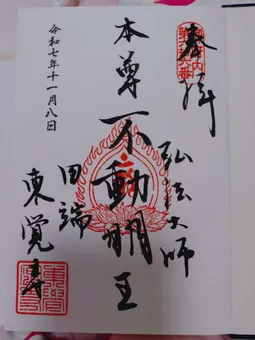 奉拝
弘法大師
本尊不動明王
田端
東覚寺
令和七年十一月八日